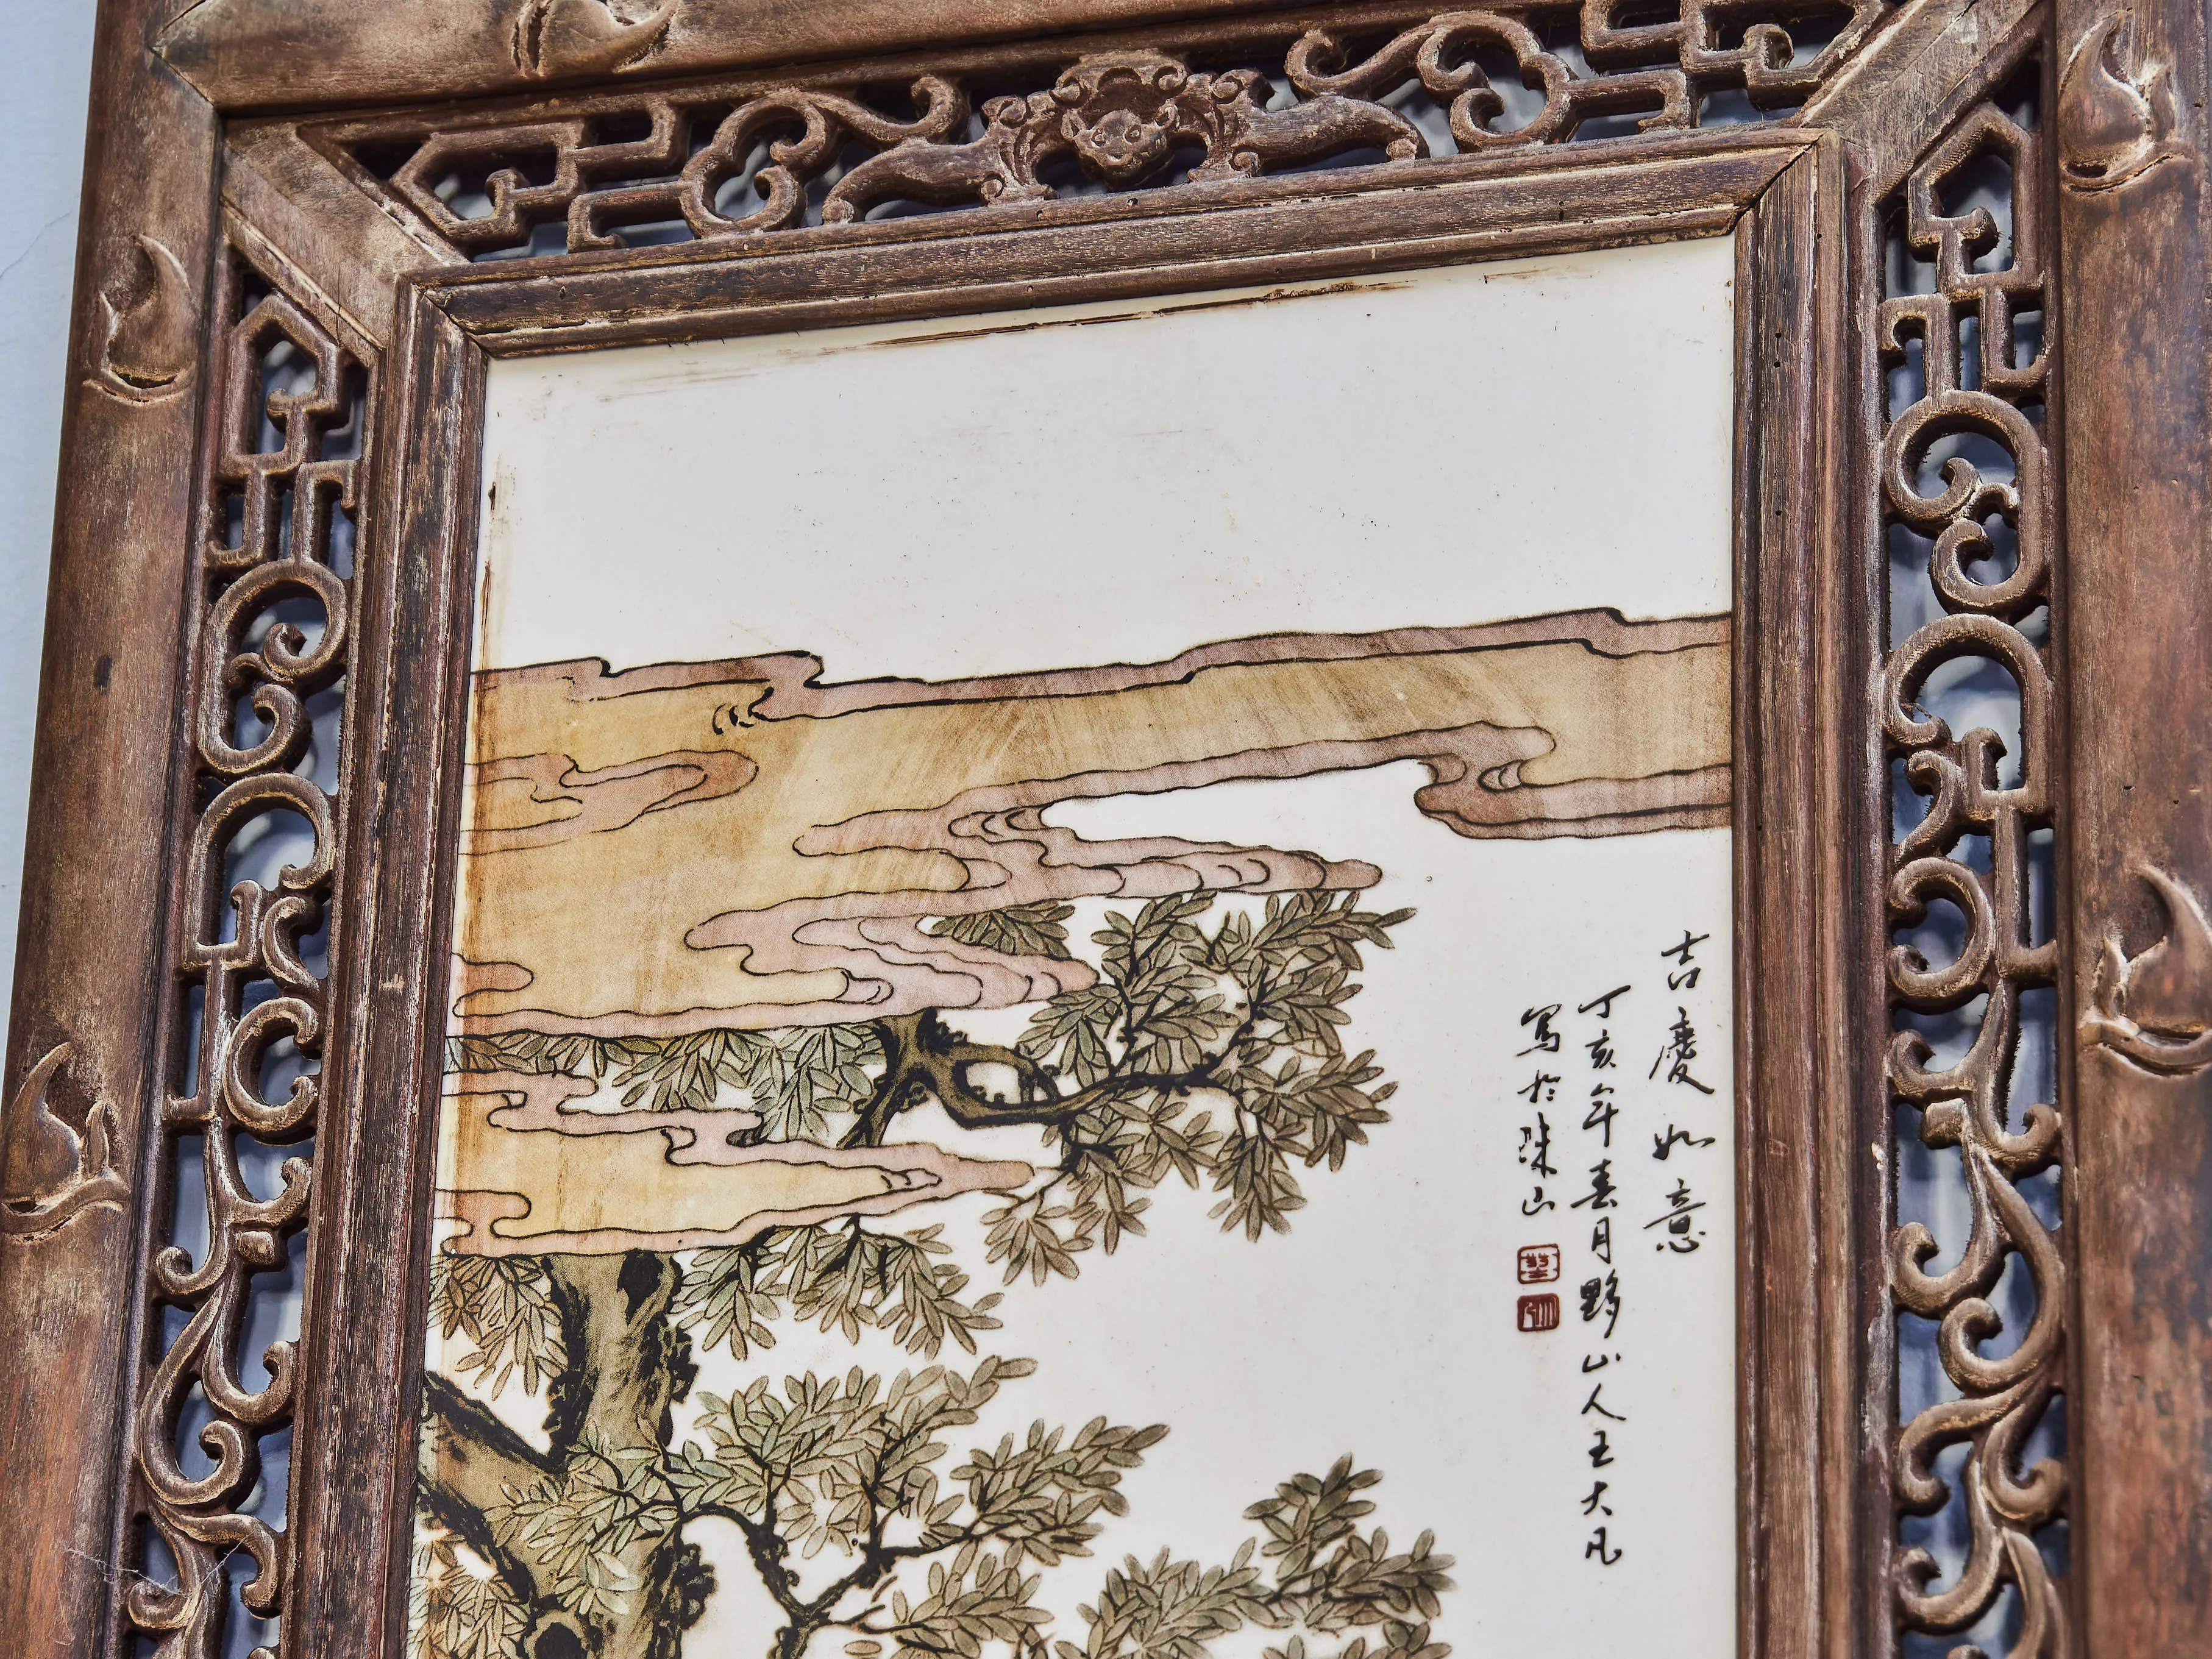 吉慶如意
丁亥年春月黟山人王大凡
寫於珠山